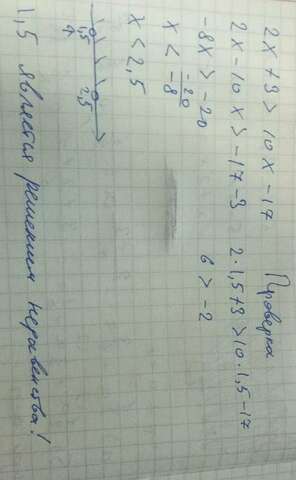 2x+3>10x-17
2x-10x>-17-3
-8x>-20
x<-20/-8
x<2,5
1,5 2,5
Проверка
2·1,5+3>10·1,5-17
6>-2
1,5 является решением неравенства!